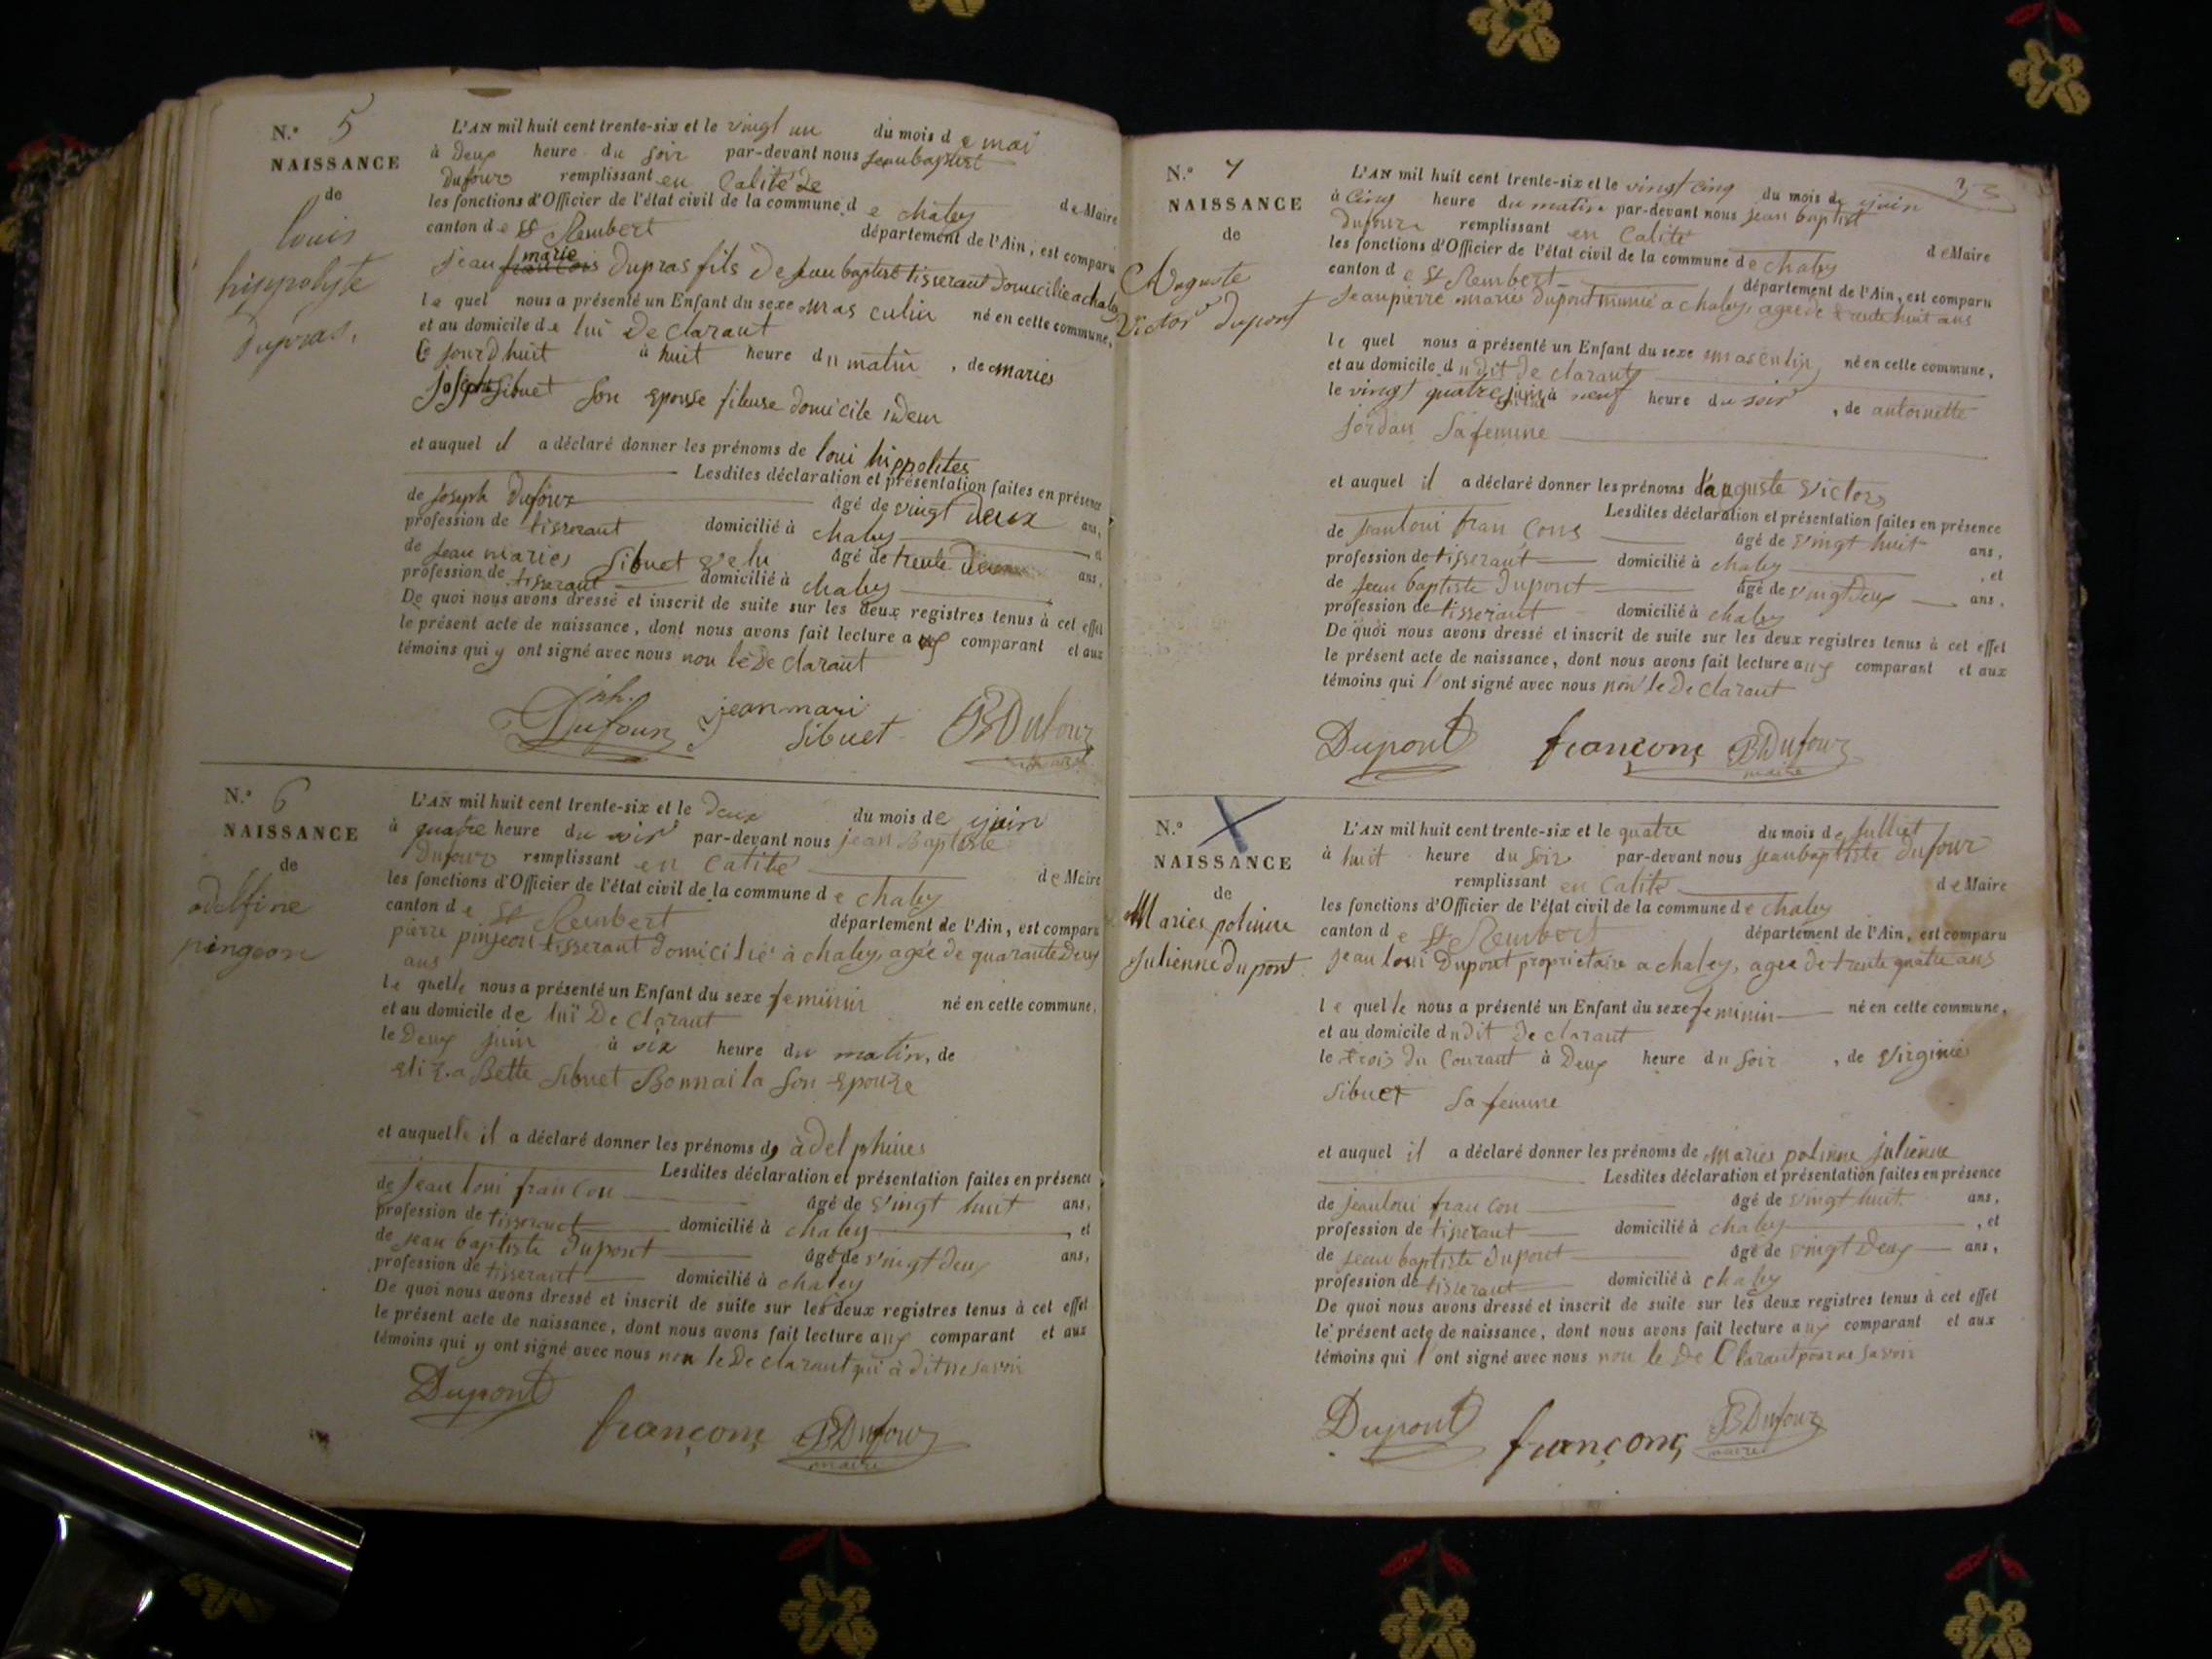 N.° 5
NAISSANCE
de
louis
hippolyte
dupras.
L'AN mil huit cent trente-six et le vingt un du mois de mai
à deux heure du soir par-devant nous jeanbaptist
dufour remplissant en Calité de
les fonctions d'Officier de l'état civil de la commune de chaley de Maire
canton de St Rembert département de l'Ain, est comparu
jean marie dupras fils de jeau baptiste tisserant domicilie a chaley
le quel nous a présenté un Enfant du sexe mas culin né en cette commune,
et au domicile de lui De clarant
Ce jourdhuit à huit heure du matin, de maries
josephte sibuet son epouse fileuse domicile idem
et auquel il a déclaré donner les prénoms de loui hippolites
Lesdites déclaration et présentation faites en présence
de joseph dufour âgé de vingt deux ans,
profession de tisserant domicilié à chaley et
de jean maries sibuet velu âgé de trente ans,
profession de tisserant domicilié à chaley
De quoi nous avons dressé et inscrit de suite sur les deux registres tenus à cet effet
le présent acte de naissance, dont nous avons fait lecture aux comparant et aux
témoins qui y ont signé avec nous non le De clarant
jph.
Dufour jeanmari
sibuet JBDufour
maire
N.° 6
NAISSANCE
de
adelfine
pingeon
L'AN mil huit cent trente-six et le deux du mois de juin
à quatre heure du soir par-devant nous jean Baptiste
Dufour remplissant en Calité
les fonctions d'Officier de l'état civil de la commune de chaley de Maire
canton de St Rembert département de l'Ain, est comparu
pierre pinjeon tisserant domicilié à chaley, agée de quarante deux
ans
le quelle nous a présenté un Enfant du sexe feminin né en cette commune,
et au domicile de lui De clarant
le deux juin à six heure du matin, de
eliza Bette sibuet Bonnaila son epouze
et auquelle il a déclaré donner les prénoms d, àdelphines
Lesdites déclaration et présentation faites en présence
de jean loui françon âgé de vingt huit ans,
profession de tisserant domicilié à chaley, et
de jean baptiste dupont âgé de vingt deux ans,
profession de tisserant domicilié à chaley
De quoi nous avons dressé et inscrit de suite sur les deux registres tenus à cet effet
le présent acte de naissance, dont nous avons fait lecture aux comparant et aux
témoins qui y ont signé avec nous non le De clarant qui à dit ne savoir
Dupont
françons JBDufour
maire
N.° 7
NAISSANCE
de
Auguste
Victor dupont
L'AN mil huit cent trente-six et le vingt cinq du mois de juin
à cinq heure du matin par-devant nous jean baptist
dufour remplissant en Calité
les fonctions d'Officier de l'état civil de la commune de chaley de Maire
canton de St Rembert département de l'Ain, est comparu
jeanpierre maries dupont a chaley, agée de trente huit ans
le quel nous a présenté un Enfant du sexe masculin né en cette commune,
et au domicile du dit De clarant
le vingt quatre juin à neuf heure du soir, de antoinette
jordan sa femme
et auquel il a déclaré donner les prénoms d'auguste Victor
Lesdites déclaration et présentation faites en présence
de jeanloui fran çons âgé de vingt huit ans,
profession de tisserant domicilié à chaley, et
de jean baptiste dupont âgé de vingt deux ans,
profession de tisserant domicilié à chaley
De quoi nous avons dressé et inscrit de suite sur les deux registres tenus à cet effet
le présent acte de naissance, dont nous avons fait lecture aux comparant et aux
témoins qui l'ont signé avec nous non le De clarant
Dupont françons JBDufour
maire
N.°
NAISSANCE
de
Maries polinne
julienne dupont
L'AN mil huit cent trente-six et le quatre du mois de julliet
à huit heure du soir par-devant nous jeanbaptiste dufour
remplissant en Calité de Maire
les fonctions d'Officier de l'état civil de la commune de chaley
canton de St Rembert département de l'Ain, est comparu
jean loui Dupont proprietaire a chaley, agee de trente quatre ans
le quelle nous a présenté un Enfant du sexe feminin né en cette commune,
et au domicile du dit De clarant
le trois du Courant à deux heure du soir, de Virginie
sibuet sa femme
et auquel il a déclaré donner les prénoms de Maries polinne julienne
Lesdites déclaration et présentation faites en présence
de jeanloui françon âgé de vingt huit ans,
profession de tisserant domicilié à chaley, et
de jean baptiste dupont âgé de vingt deux ans,
profession de tisserant domicilié à chaley
De quoi nous avons dressé et inscrit de suite sur les deux registres tenus à cet effet
le présent acte de naissance, dont nous avons fait lecture aux comparant et aux
témoins qui l'ont signé avec nous non le De Clarant pour ne savoir
Dupont françons JBDufour
maire